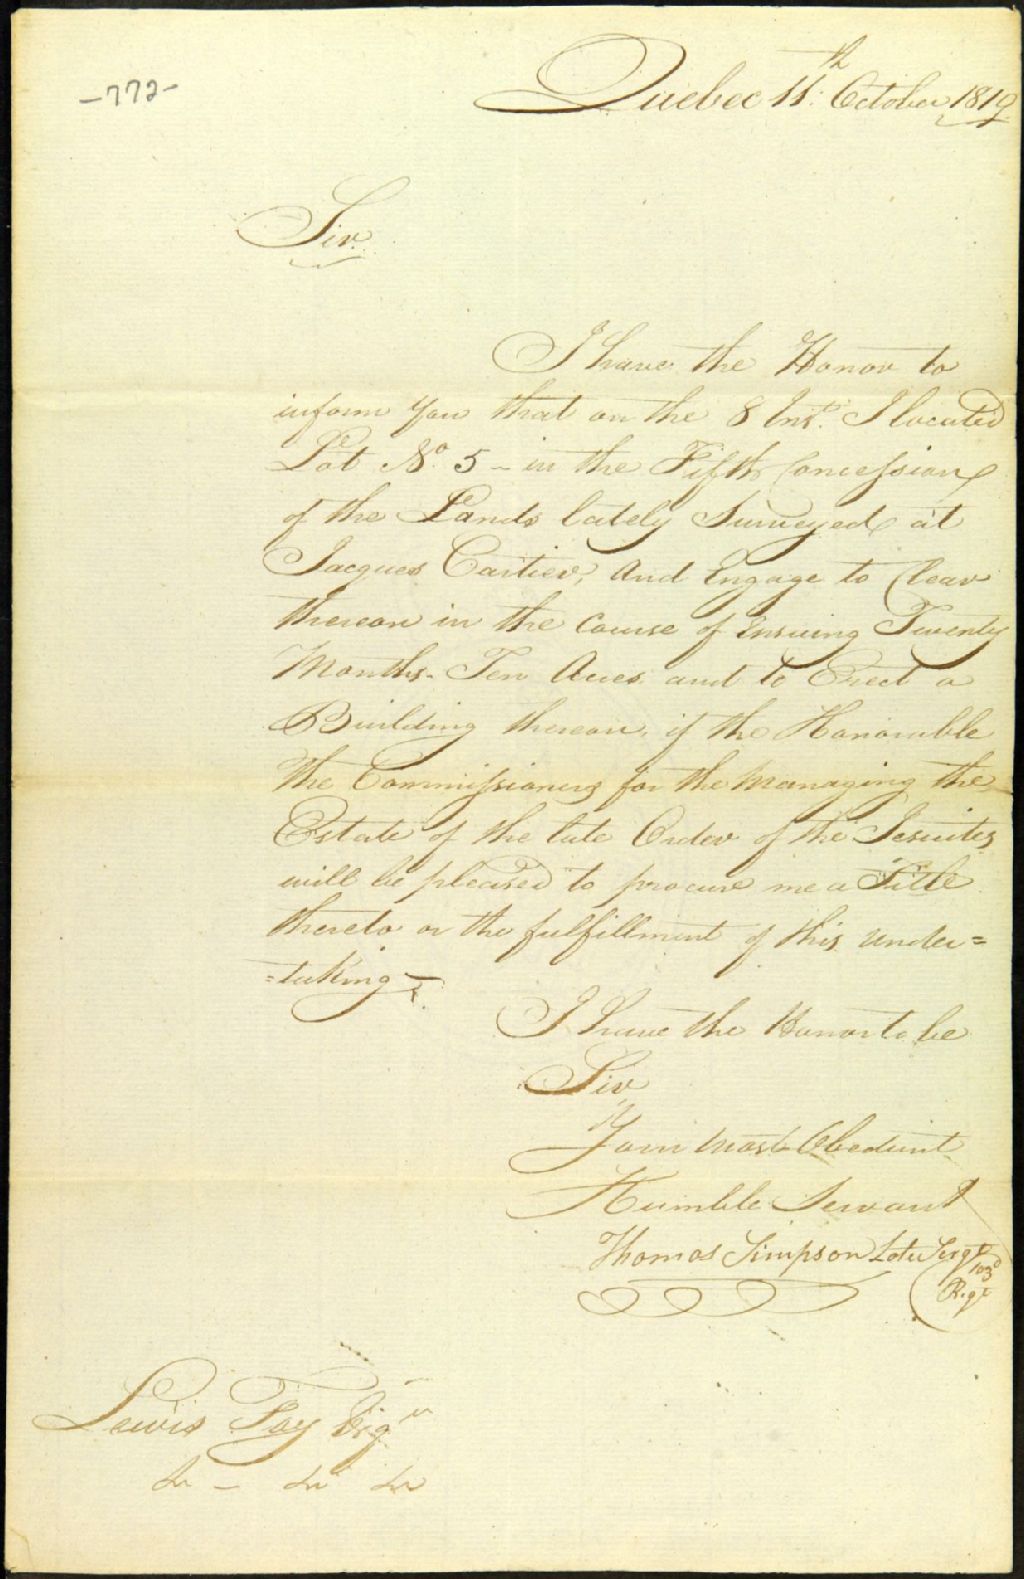 -772-
Quebec 11th October 1819
Sir
I have the Honor to
inform You that on the 8 Inst. I located
Lot No. 5 - in the Fifth Concession
of the Lands lately Surveyed at
Jacques Cartier, And Engage to Clear
thereon in the Course of Ensuing Twenty
Months. Ten Acres and to Erect a
Building thereon, if the Honorable
the Commissioners for the Managing the
Estate of the late Order of the Jesuites
will be pleased to procure me a Title
thereto on the fulfillment of this under=
=taking.
I have the Honor to be
Sir
Your most Obedient
Humble Servant
Thomas Simpson Late Sergt
103d
Regt
Lewis Foy Esqr
&c - &c &c